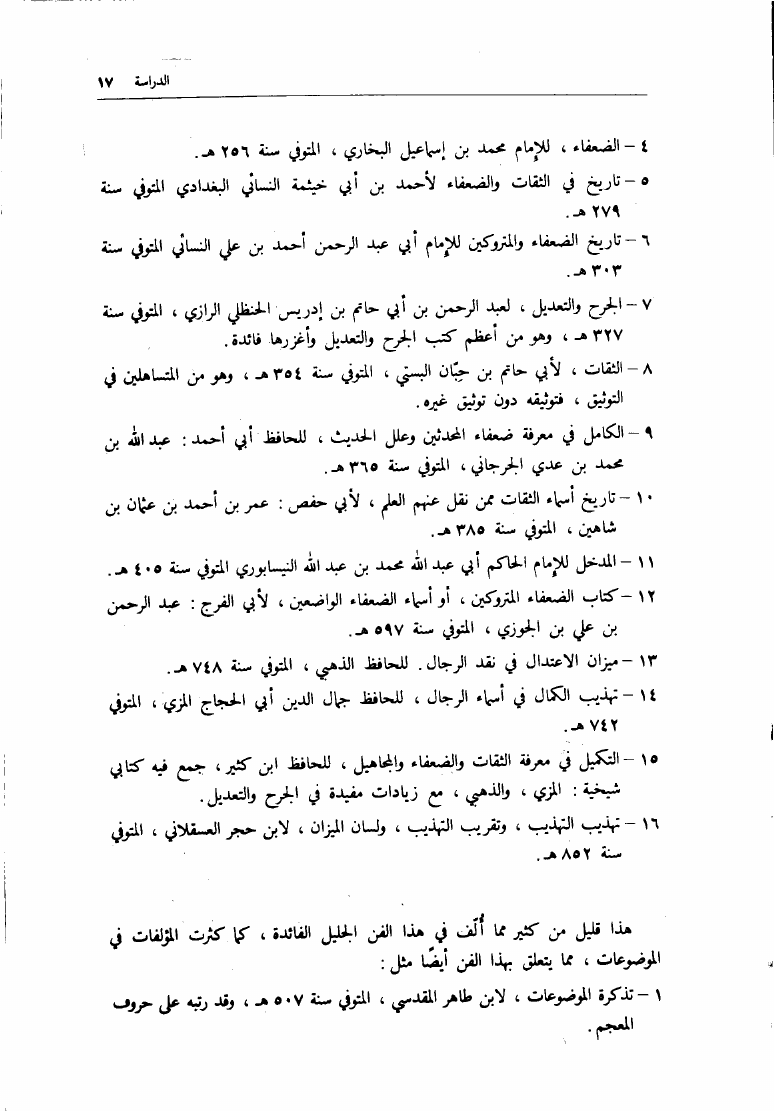 الدراسة ١٧
٤ – الضعفاء ، للإمام محمد بن إسماعيل البخاري ، المتوفي سنة ٢٥٦ هـ .
٥ – تاريخ في الثقات والضعفاء لأحمد بن أبي خيثمة النسائي البغدادي المتوفي سنة
٢٧٩ هـ .
٦ – تاريخ الضعفاء والمتروكين للإمام أبي عبد الرحمن أحمد بن علي النسائي المتوفي سنة
٣٠٣ هـ .
٧ – الجرح والتعديل ، لعبد الرحمن بن أبي حاتم بن إدريس الحنظلي الرازي ، المتوفي سنة
٣٢٧ هـ ، وهو من أعظم كتب الجرح والتعديل وأغزرها فائدة .
٨ – الثقات ، لأبي حاتم بن حِبّان البستي ، المتوفي سنة ٣٥٤ هـ ، وهو من المتساهلين في
التوثيق ، فتوثيقه دون توثيق غيره .
٩ – الكامل في معرفة ضعفاء المحدثين وعلل الحديث ، للحافظ أبي أحمد : عبد الله بن
محمد بن عدي الجرجاني ، المتوفي سنة ٣٦٥ هـ .
١٠ – تاريخ أسماء الثقات ممن نقل عنهم العلم ، لأبي حفص : عمر بن أحمد بن عثمان بن
شاهين ، المتوفي سنة ٣٨٥ هـ .
١١ – المدخل للإمام الحاكم أبي عبد الله محمد بن عبد الله النيسابوري المتوفي سنة ٤٠٥ هـ .
١٢ – كتاب الضعفاء المتروكين ، أو أسماء الضعفاء الواضعين ، لأبي الفرج : عبد الرحمن
بن علي بن الجوزي ، المتوفي سنة ٥٩٧ هـ .
١٣ – ميزان الاعتدال في نقد الرجال . للحافظ الذهبي ، المتوفي سنة ٧٤٨ هـ .
١٤ – تهذيب الكمال في أسماء الرجال ، للحافظ جمال الدين أبي الحجاج المزي ، المتوفي
٧٤٢ هـ .
١٥ – التكميل في معرفة الثقات والضعفاء والمجاهيل ، للحافظ ابن كثير ، جمع فيه كتابي
شيخية : المزي ، والذهبي ، مع زيادات مفيدة في الجرح والتعديل .
١٦ – تهذيب التهذيب ، وتقريب التهذيب ، ولسان الميزان ، لابن حجر العسقلاني ، المتوفي
سنة ٨٥٢ هـ .
هذا قليل من كثير مما أُلّف في هذا الفن الجليل الفائدة ، كما كثرت المؤلفات في
الموضوعات ، مما يتعلق بهذا الفن أيضًا مثل :
١ – تذكرة الموضوعات ، لابن طاهر المقدسي ، المتوفي سنة ٥٠٧ هـ ، وقد رتبه على حروف
المعجم .